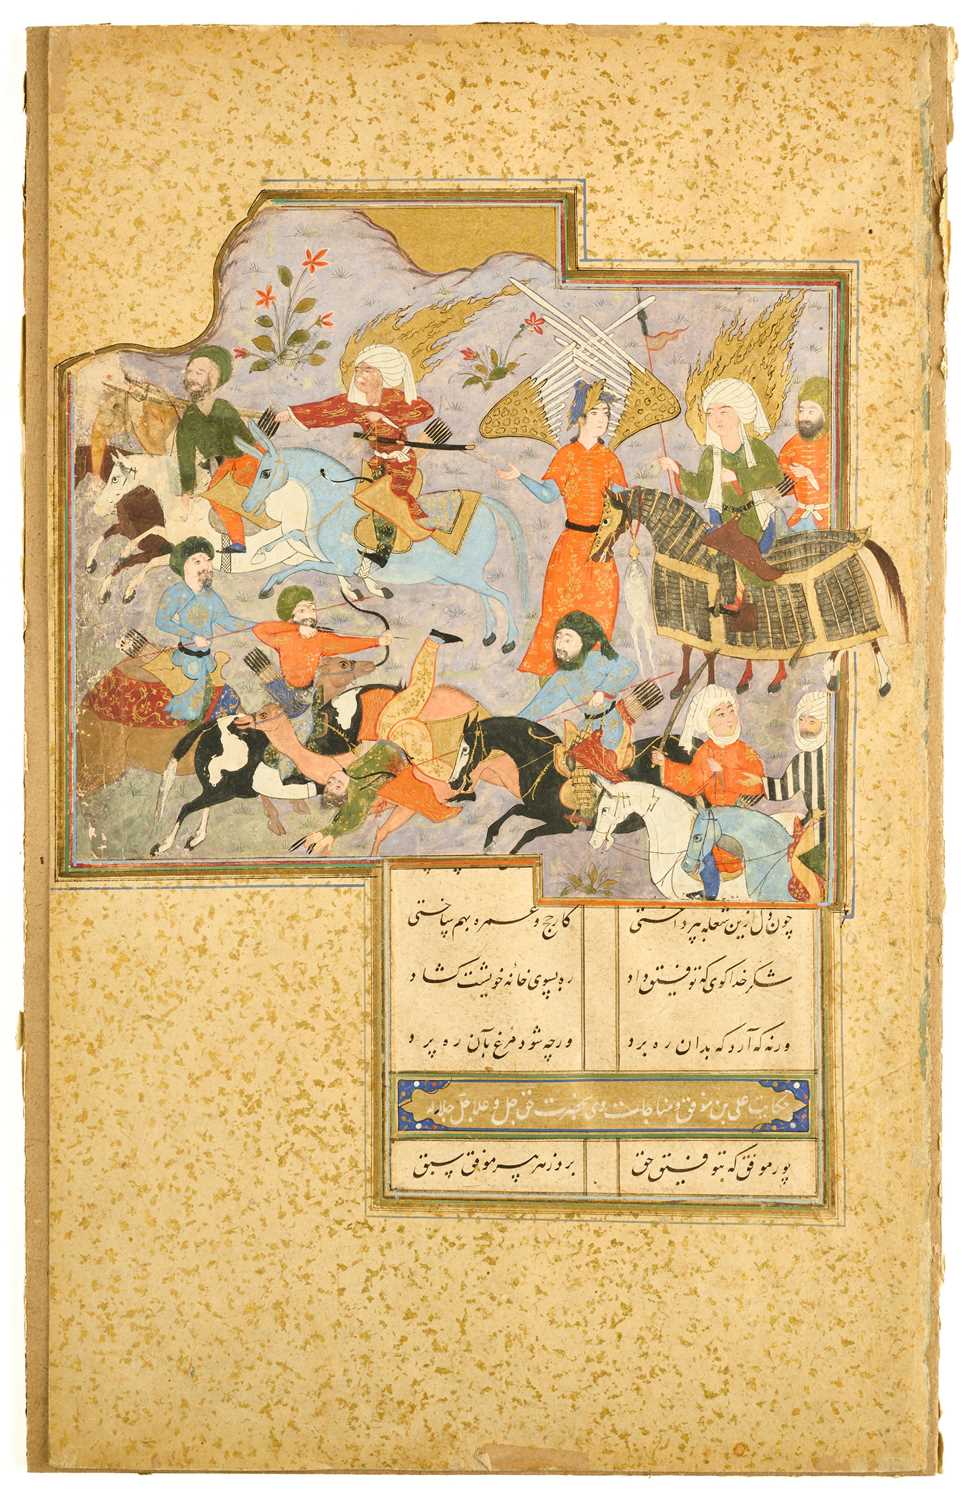 چون دل ازین شعله بپرداختی کار حج و عمره بهم ساختی
شکر خدا کوی که توفیق داد ره بسوی خانه خویشت کشاد
ورنه که آرد که بدان ره برد ورچه شود مرغ بآن ره پرد
حکایت علی بن موفق و مناجات وی بحضرت حق جل و علا
پور موفق که بتوفیق حق برد ز هر پیر موفق سبق